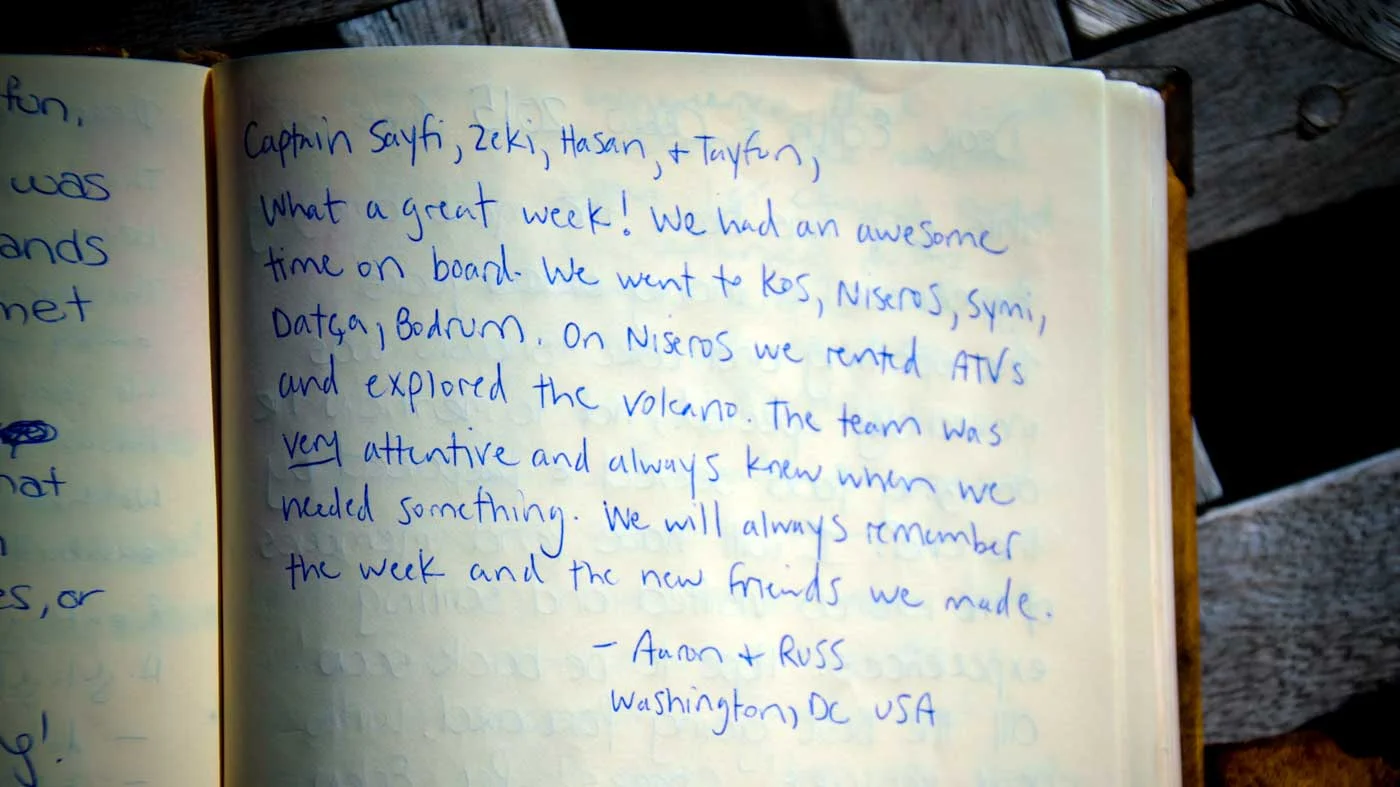 fun,
was
ands
net
hat
es, or
y!
Captain Sayfi, Zeki, Hasan, + Tayfun,
What a great week! We had an awesome
time on board. We went to Kos, Niseros, Symi,
Datça, Bodrum. On Niseros we rented ATVs
and explored the volcano. The team was
very attentive and always knew when we
needed something. We will always remember
the week and the new friends we made.
- Aaron + Russ
Washington, DC USA